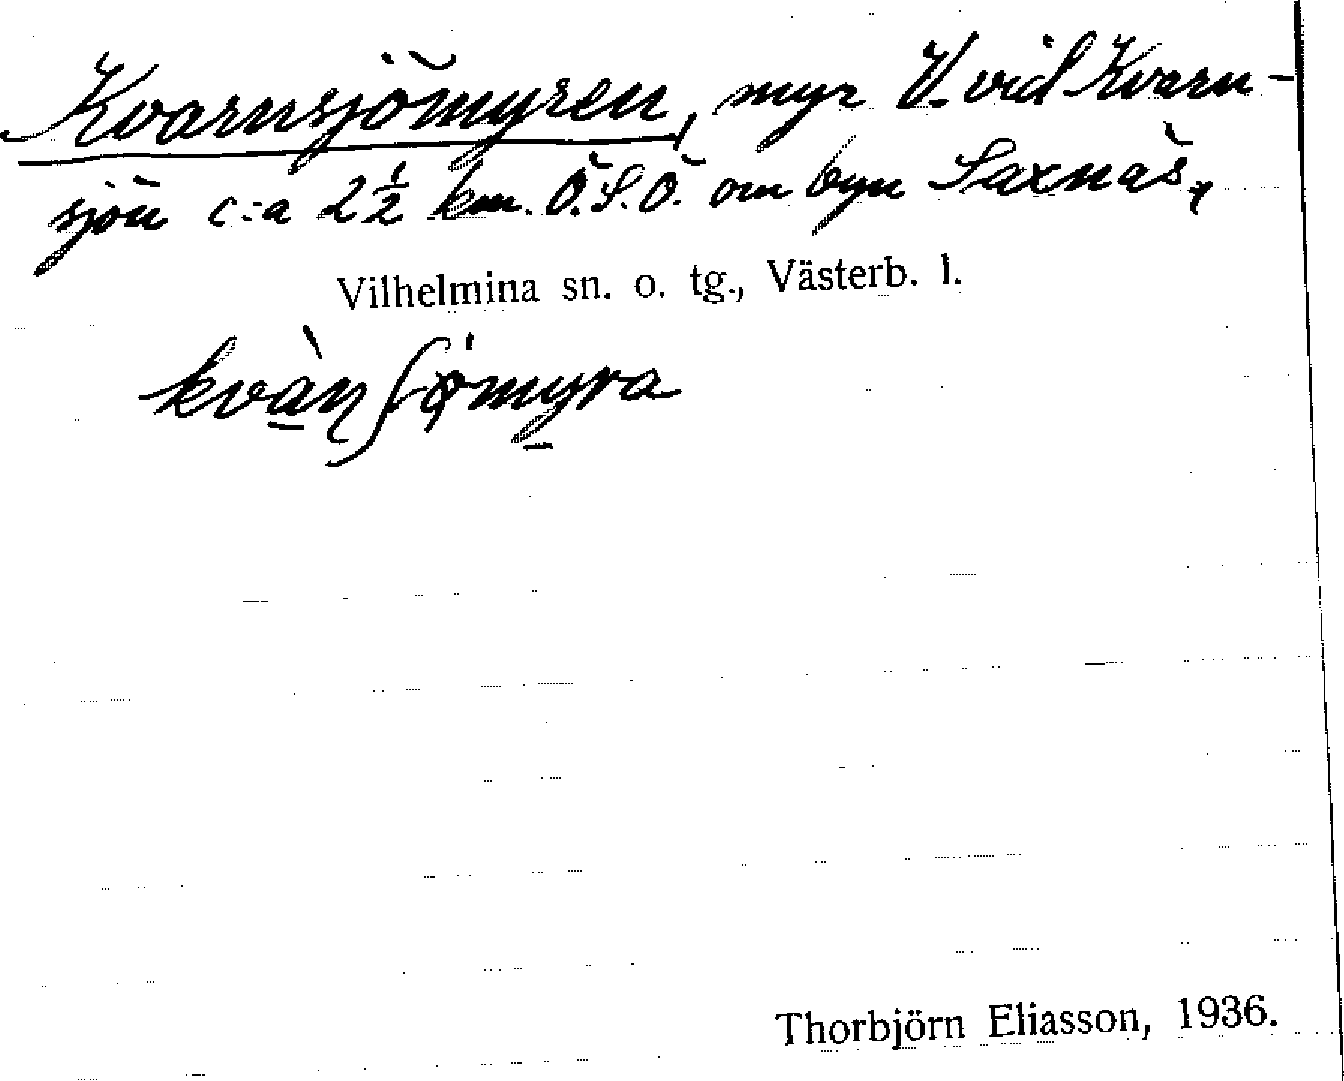 Kvarnsjömyren, myr V. vid Kvarn-
sjön c:a 2½ km. Ö.S.Ö. om byn Saxnäs,
Vilhelmina sn. o. tg., Västerb. l.
kvàɳʃø'myra
Thorbjörn Eliasson, 1936.